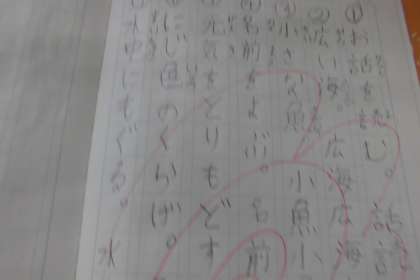 ①お話を読む。話
②広い海 広海広海
③小さな魚 小魚小
名前をよぶ。名前
元気をとりもどす
にじ色のくらげ。
水中にもぐる。水